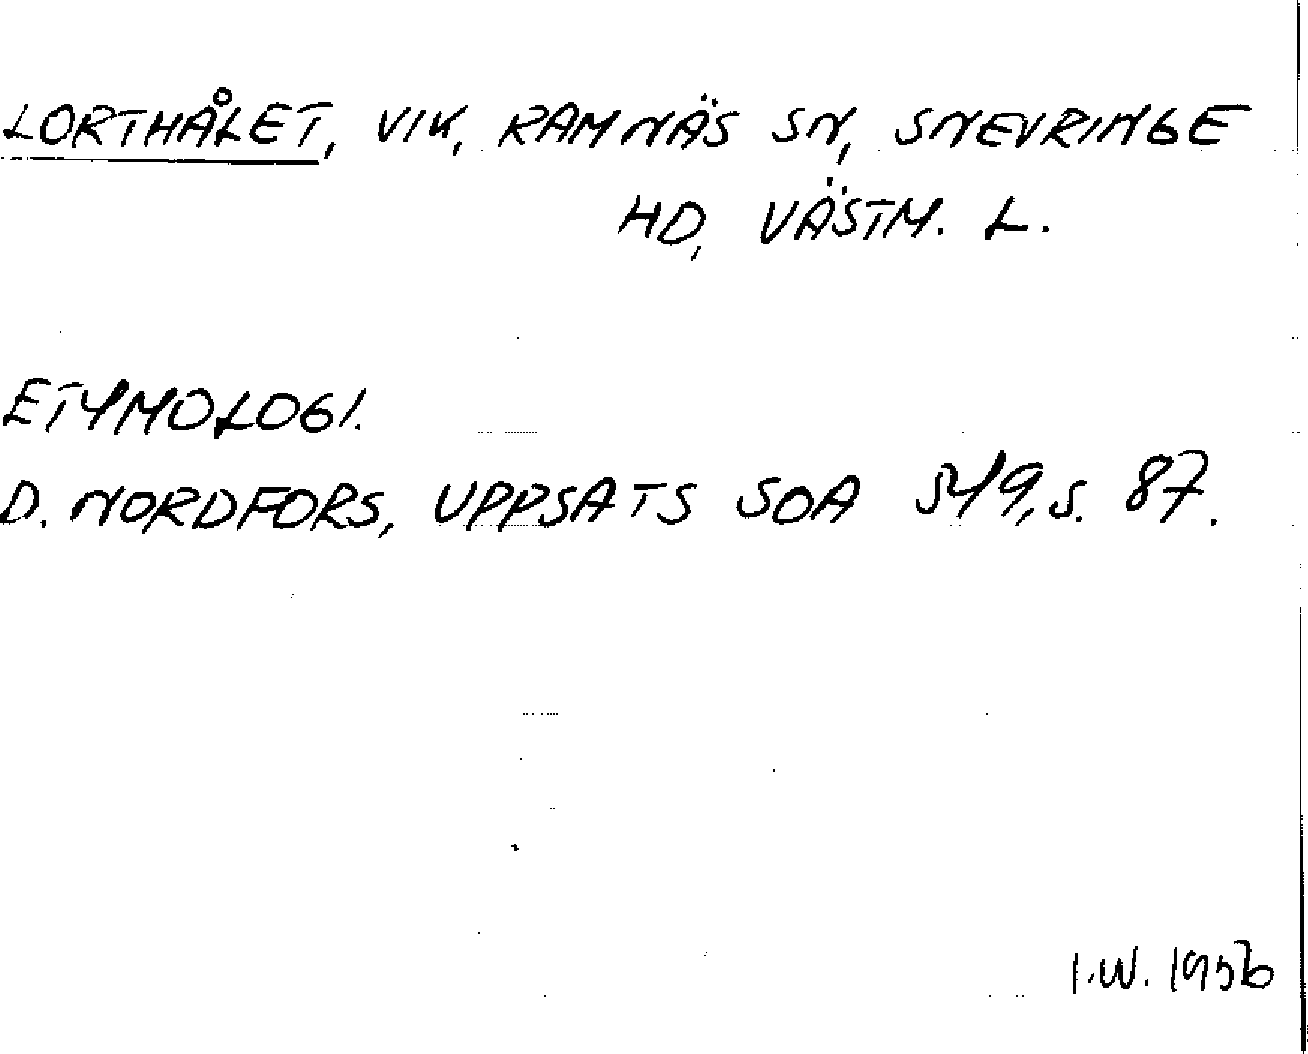 LORTHÅLET, VIK, RAMNÄS SN, SNEVRINGE
HD, VÄSTM. L.
ETYMOLOGI.
D. NORDFORS, UPPSATS SOA 549, S. 87.
I.W. 1956